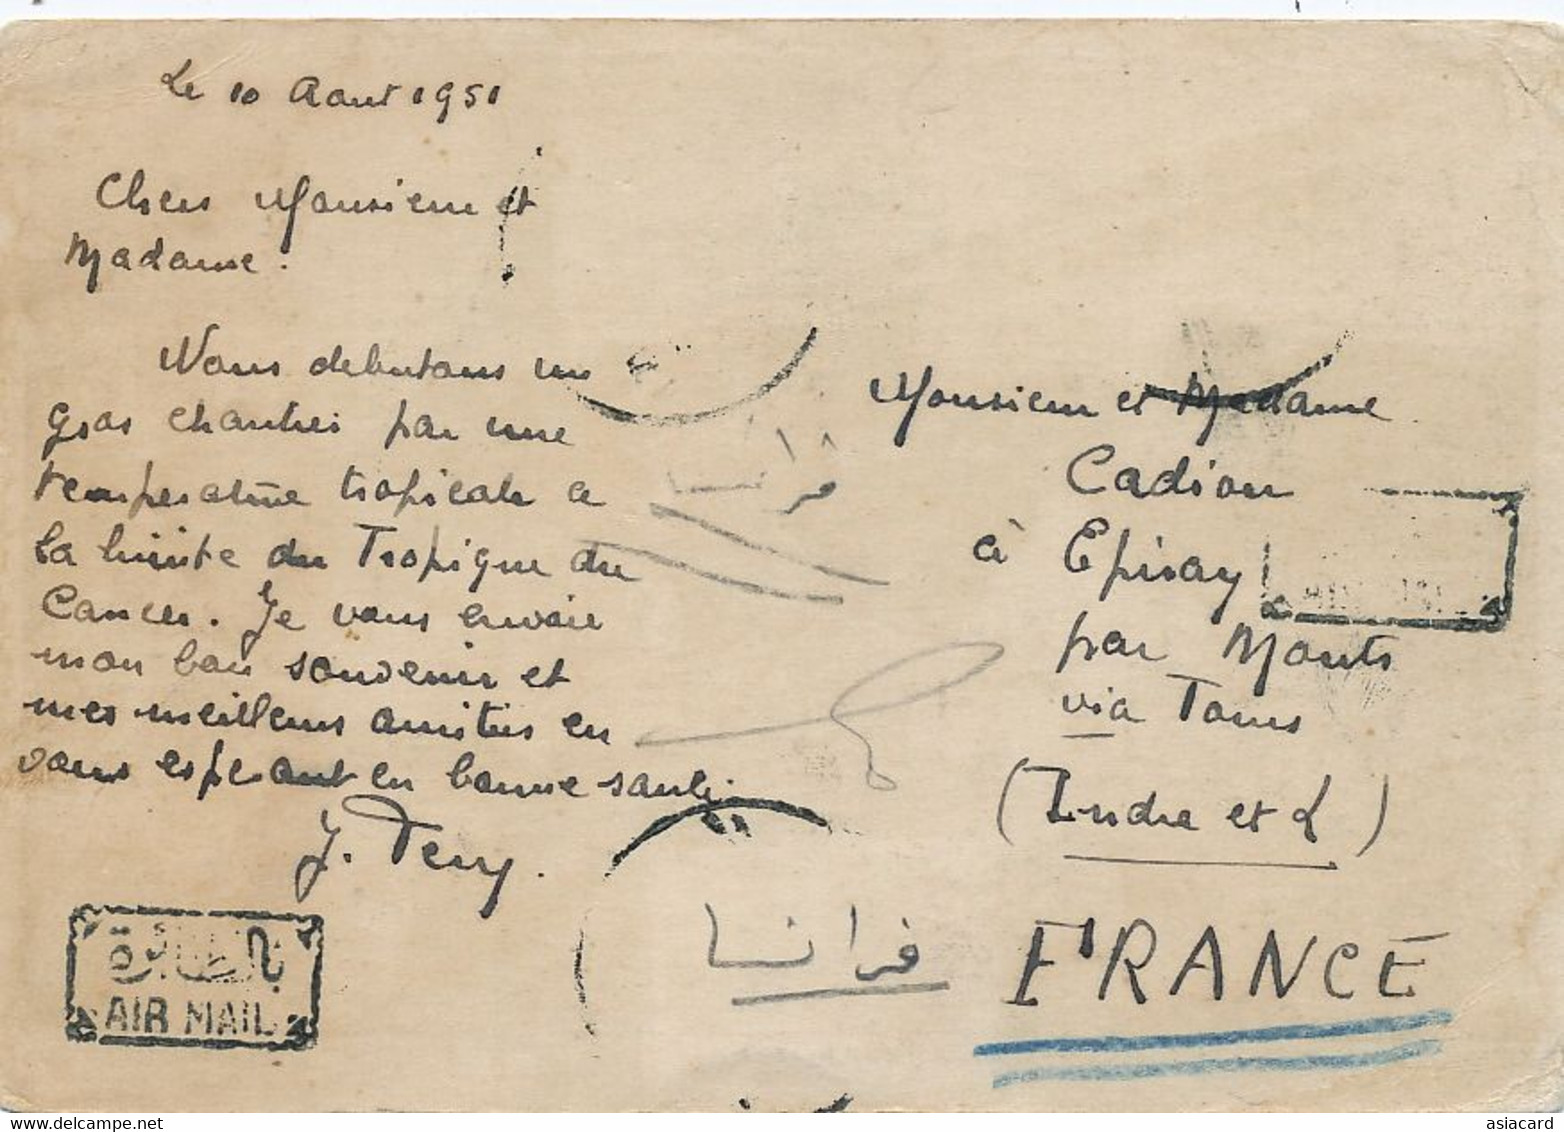 Le 10 Aout 1951
Chers Monsieur et
Madame.
Nous debutons un
gros chantier par une
temperature tropicale a
la limite du Tropique du
Cancer. Je vous envoie
mon bon souvenir et
mes meilleurs amitiés en
vous esperant en bonne santé.
J. Pery.
بالطائرة
AIR MAIL
فرانسا
فرانسا
Monsieur et Madame
Cadiou
à Epiray
par Monts
via Tours
(Indre et L)
FRANCE
asiacard